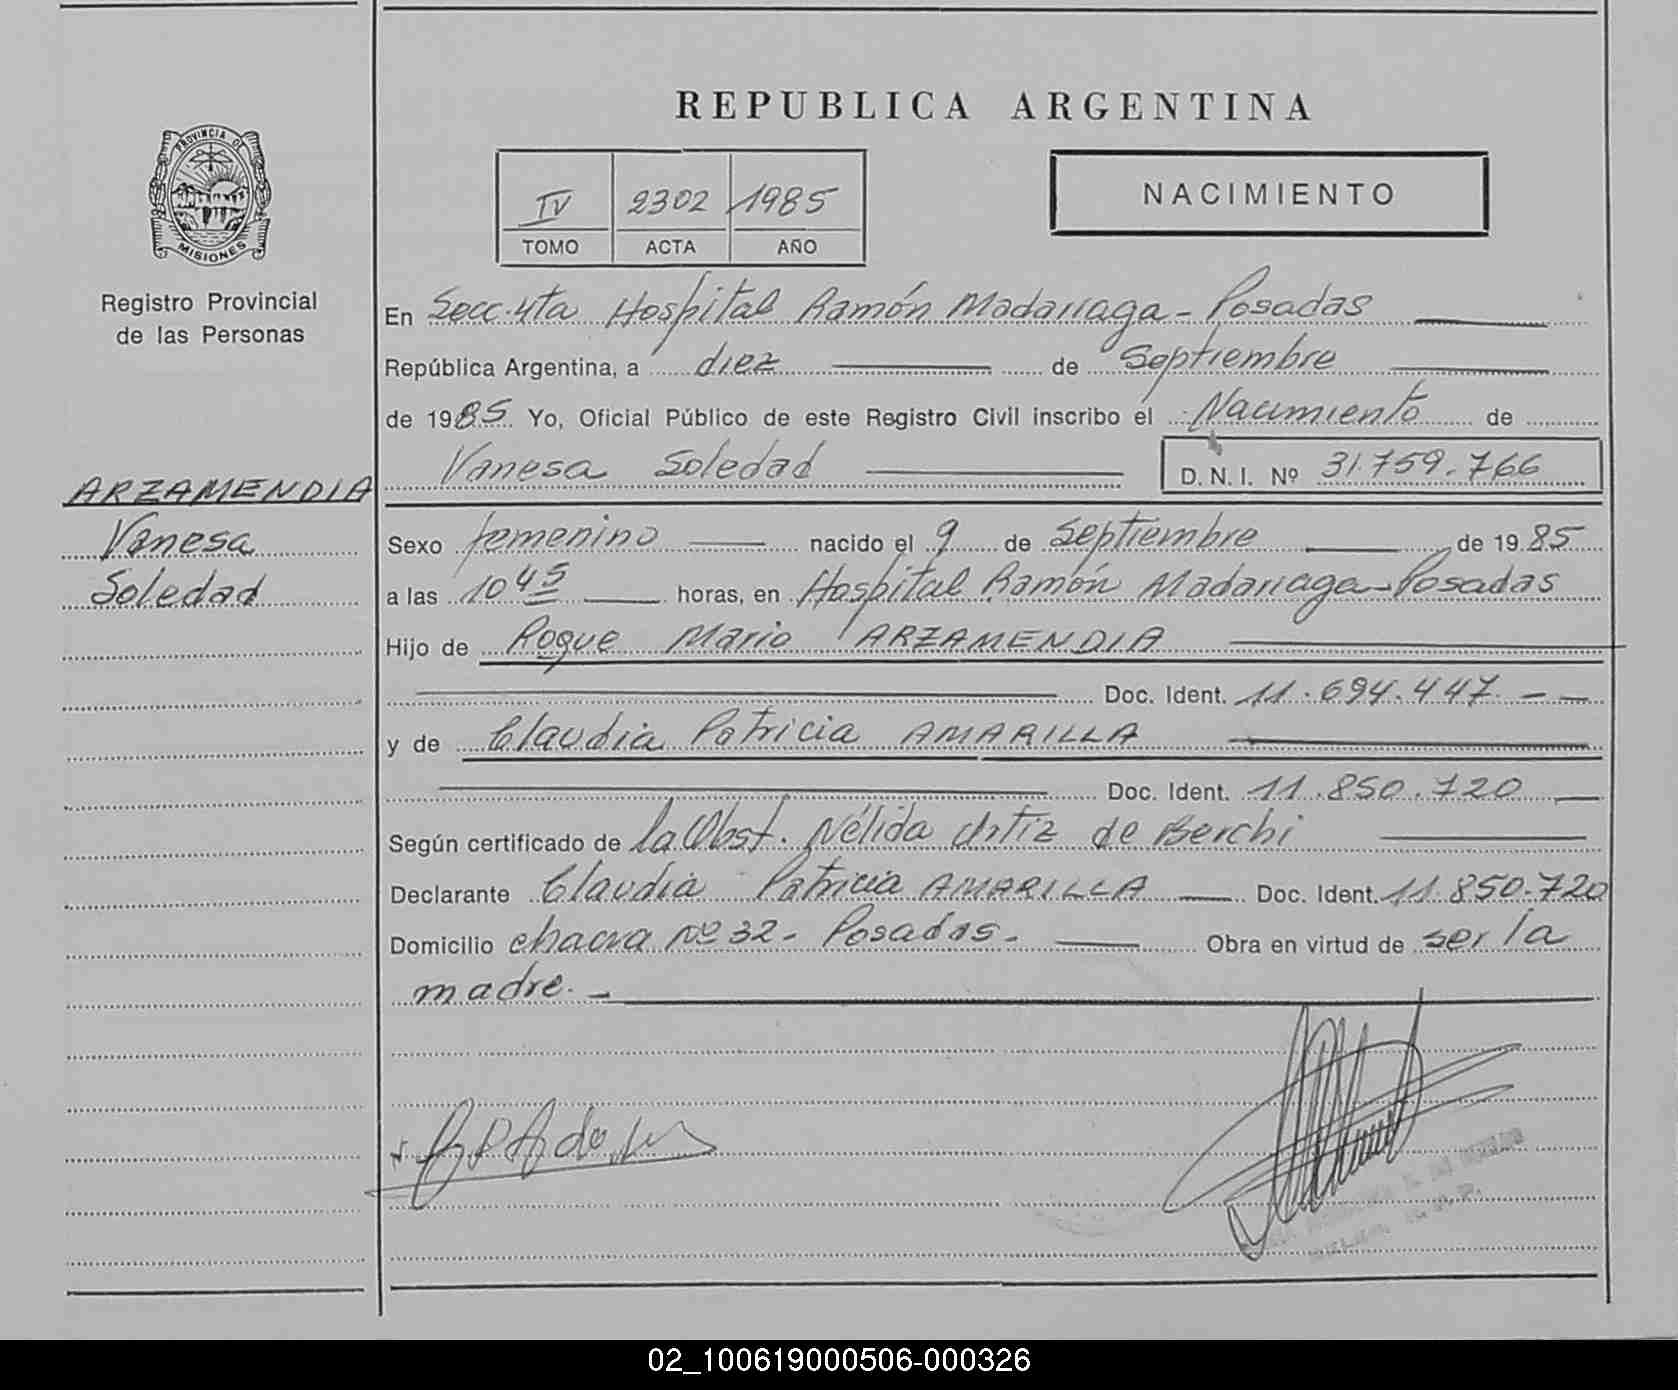 REPUBLICA ARGENTINA
PROVINCIA DE
MISIONES
Registro Provincial
de las Personas
IV 2302 1985
TOMO ACTA AÑO
NACIMIENTO
En Secc. 4ta Hospital Ramón Madariaga - Posadas
República Argentina, a diez de Septiembre
de 1985 Yo, Oficial Público de este Registro Civil inscribo el Nacimiento de
Vanesa Soledad D.N.I. Nº 31.759.766
ARZAMENDIA
Vanesa
Soledad
Sexo femenino nacido el 9 de Septiembre de 1985
a las 10 45 horas, en Hospital Ramón Madariaga - Posadas
Hijo de Roque Mario ARZAMENDIA
Doc. Ident. 11.694.447
y de Claudia Patricia AMARILLA
Doc. Ident. 11.850.720
Según certificado de la Obst. Nélida Ortiz de Berchi
Declarante Claudia Patricia AMARILLA Doc. Ident. 11.850.720
Domicilio chacra Nº 32 - Posadas. Obra en virtud de ser la
madre.
02_100619000506-000326